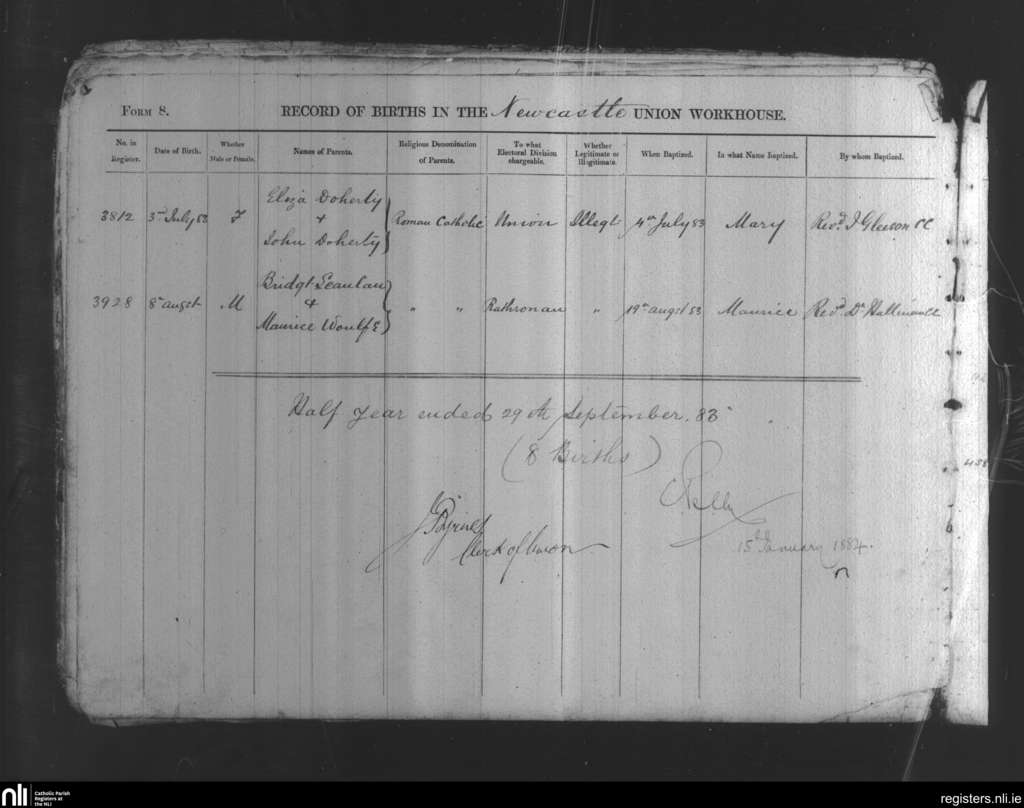 Form 8.
RECORD OF BIRTHS IN THE Newcastle UNION WORKHOUSE.
No. in Register. Date of Birth. Whether Male or Female. Names of Parents. Religious Denomination of Parents. To what Electoral Division chargeable. Whether Legitimate or Illegitimate. When Baptized. In what Name Baptized. By whom Baptized.
Eliza Doherty
3812 3rd July 83 F & Roman Catholic Union Illegt 4th July 83 Mary Revd. J Gleeson CC
John Doherty
Bridgt Scanlan
3928 8th augst M & " " Rathronan " 19th augst 83 Maurice Revd. Dr Hallinan CC
Maurice Woulfe
Half year ended 29th September. 83
(8 Births)
J Byrnes
Clerk of Union
15th January 1884.
458
nli
Catholic Parish
Registers at
the NLI
registers.nli.ie